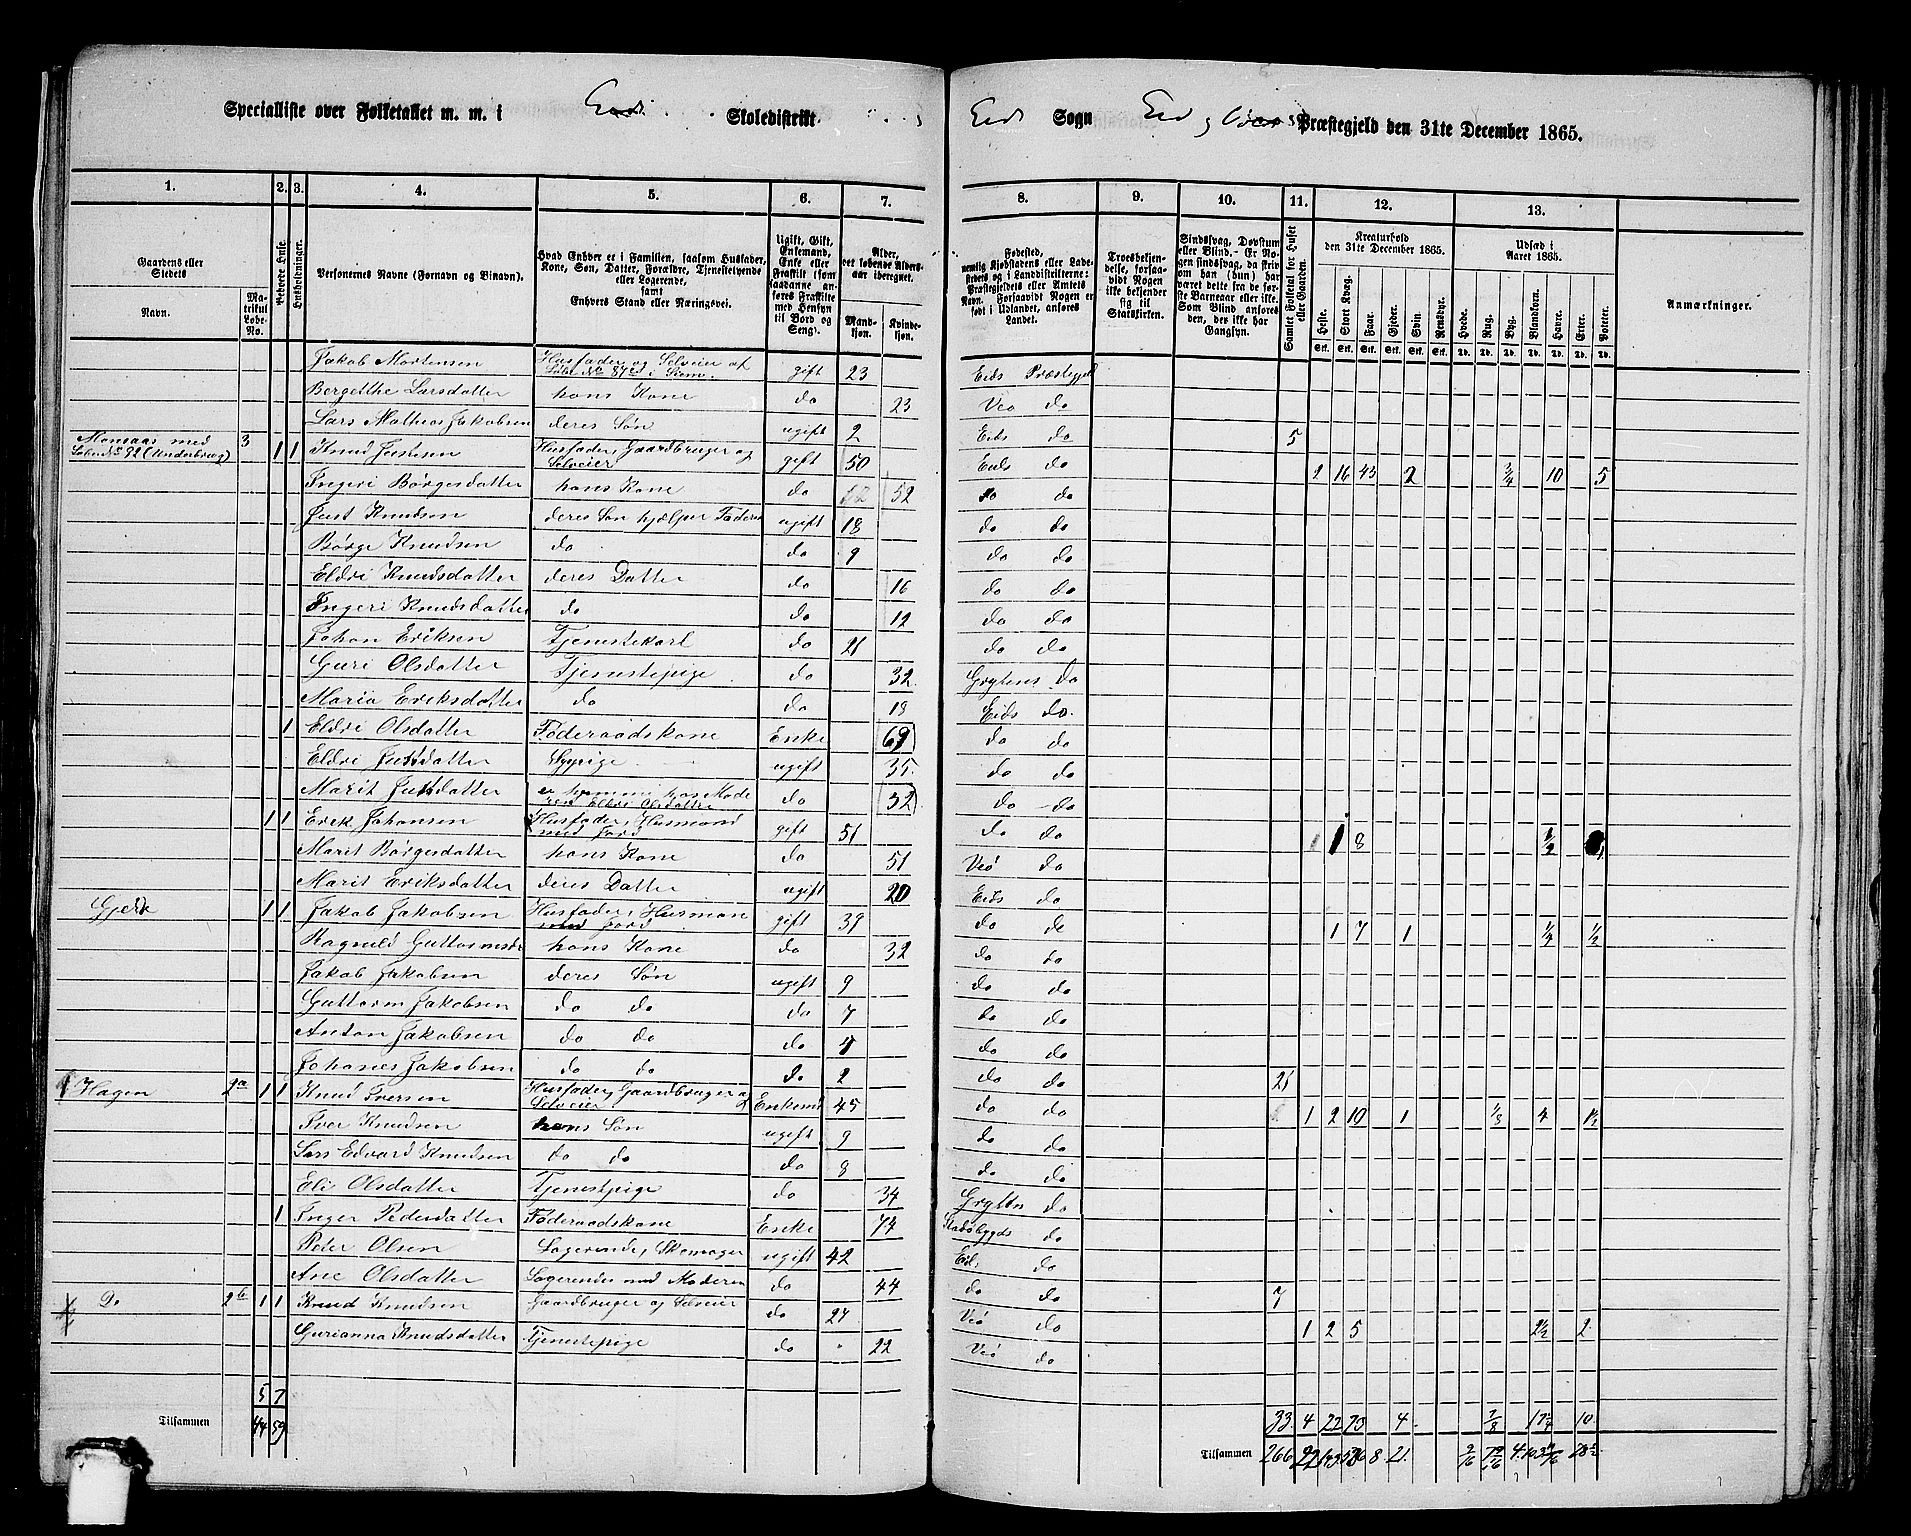 Specialliste over Folketallet m. m. i Eids Skoledistrikt Eids Sogn Eid og Veø Præstegjeld den 31te December 1865.
1. 2. 3. 4. 5. 6. 7. 8. 9. 10. 11. 12. 13.
Gaardens eller Stedets
Navn. Matrikul Løbe-No.
Beboede Huse.
Husholdninger.
Personernes Navne (Fornavn og Tilnavn).
Hvad Enhver er i Familien, saasom Husfader, Kone, Søn, Datter, Forældre, Tjenestetyende eller Logerende, samt Enhvers Stand eller Næringsvei.
Ugift, Gift, Enkemand, Enke eller Fraskilt (som saadanne anføres Fraskilte med Hensyn til Bord og Seng).
Alder, det løbende Aldersaar iberegnet.
Mandkjøn. Kvindekjøn.
Fødested, nemlig Kjøbstadens eller Ladestedets og i Landdistrikterne: Præstegjeldets eller Amtets Navn. Forsaavidt Nogen er født i Udlandet, anføres Landet.
Troesbekjendelse, forsaavidt Nogen ikke bekjender sig til Statskirken.
Sindssvag, Døvstum eller Blind.
Samlet Folketal for Huset eller Gaarden.
Kreaturhold den 31te December 1865.
Heste. Stort Kvæg. Faar. Gjeder. Svin. Rensdyr.
Udsæd i Aaret 1865.
Hvede. Rug. Byg. Blandkorn. Havre. Erter. Poteter.
Anmærkninger.
Jakob Mortensen Husfader og Selveier af Løbe No 87d i gift 23 Eids Præstegjeld
Bergitthe Larsdatter hans Kone do 23 Veø do
Lars Mathias Jakobsen deres Søn ugift 2 Eids do 5
Monsaas med Løbe No 92 (Underbrug) 3 1 1 Knud Justsen Husfader, Gaardbruger og Selveier gift 50 Eids do 2 16 43 2 3/4 10 5
Ingeri Børgesdatter hans Kone do 52 do do
Just Knudsen deres Søn hjælper Faderen ugift 18 do do
Børge Knudsen do do 9 do do
Eldri Knudsdatter deres Datter do 16 do do
Ingeri Knudsdatter do do 12 do do
Johan Eriksen Tjenestekarl do 21 do do
Guri Olsdatter Tjenestepige do 32 Gryttens do
Maria Eriksdatter do do 18 Eids do
1 Eldri Olsdatter Føderaadskone Enke 69 do do
Eldri Justdatter Sypige ugift 35 do do
Marit Justdatter er hjemme hos Moderen Eldri Olsdatter do 32 do do
1 1 Erik Johansen Husfader, Husmand med Jord gift 51 do do 1 8 1/2
Marit Børgesdatter hans Kone do 51 Veø do
Marit Eriksdatter deres Datter ugift 20 Eids do
1 1 Jakob Jakobsen Husfader, Husman med Jord gift 39 do do 1 7 1 1/4 1/2
Ragnild Guttormsdr hans Kone do 32 do do
Jakob Jakobsen deres Søn ugift 9 do do
Guttorm Jakobsen do do do 7 do do
Anton Jakobsen do do do 4 do do
Johanes Jakobsen do do do 2 do do 21
Hagen 2a 1 1 Knud Iversen Husfader, Gaardbruger og Selveier Enkem 45 do do 1 2 10 1 1/8 4 1½
Iver Knudsen hans Søn ugift 9 do do
Lars Edvard Knudsen do do do 8 do do
Eli Olsdatter Tjenestpige do 34 Grytten do
1 Inger Pedersdatter Føderaadskone Enke 74 Stadsbygds do
Peter Olsen Logerende, Skomager ugift 42 Eid do
Ane Olsdatter Logerendes med Moderen do 44 do do 7
Do 2b 1 1 Knud Knudsen Gaardbruger og Selveier do 27 Veø do 1 2 5 2½ 2
Gurianna Knudsdatter Tjenestepige do 22 Veø do
5 7
Tilsammen 44 59
33 4 22 73 4 7/8 17¼ 10
Tilsammen 266